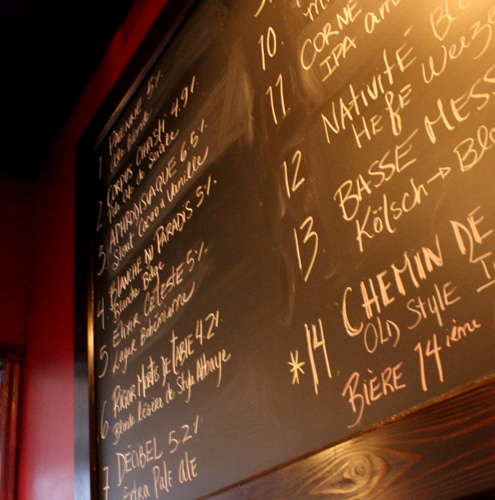 1 5%
Blonde
2 CORPUS CHRISTI 4.9%
Pale Ale de Seigle
3 APHRODISIAQUE 6.5%
Stout Cacao & Vanille
4 BLANCHE DU PARADIS 5%
Blanche Belge
5 ELIXIR CÉLESTE 5%
Lager Bohémienne
6 RIGOR MORTIS DE TABLE 4.2%
Blonde légère de Style Abbaye
7 DÉCIBEL 5.2%
Extra Pale ale
10. CORNE
IPA am
11. NATIVITÉ BL
HEFE Weize
12 BASSE MESS
Kölsch → Bl
13 CHEMIN DE
OLD Style I
*14 BIÈRE 14 ième